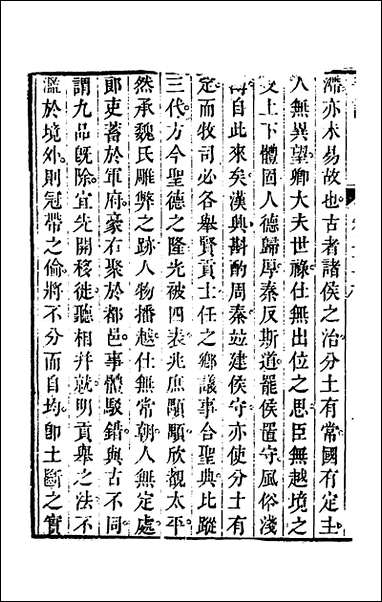 滯亦未易故也古者諸侯之治分土有常國有定主
人無異望卿大夫世祿仕無出位之思臣無越境之
交上下體固人德歸厚秦反斯道罷侯置守風俗淺
自此來矣漢興斟酌周秦竝建侯守亦使分土有
定而牧司必各舉賢貢士任之鄉議事合聖典比蹤
三代方今聖德之隆光被四表兆庶顒顒欣覩太平
然承魏氏雕弊之跡人物播越仕無常朝人無定處
郎吏蓄於軍府豪右聚於都邑事體駁錯與古不同
謂九品旣除宜先開移徙聽相并就明貢舉之法不
濫於境外則冠帶之倫將不分而自均卽土斷之實